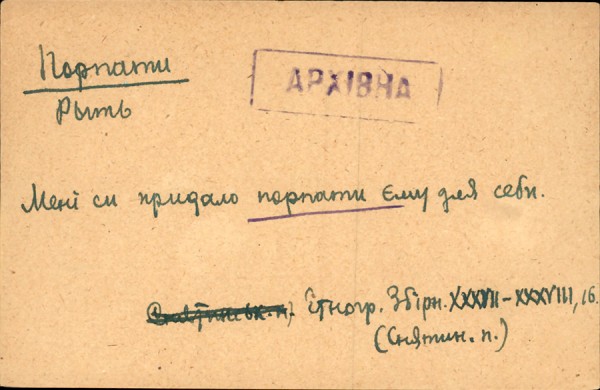 Порпати
АРХІВНА
Рыть
Мені си придало порпати єму для себи.
Етногр. Збірн. XXXVII-XXXVIII, 16.
(Снятин. п.)